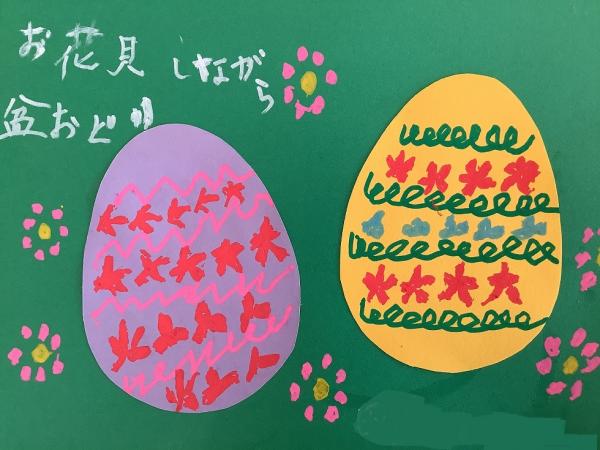 お花見しながら
盆おどり